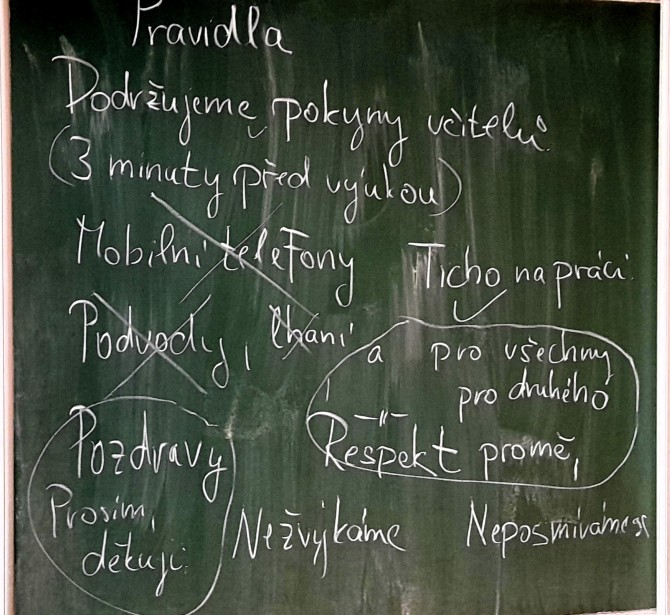 Pravidla
Dodržujeme pokyny učitelů.
(3 minuty před výukou)
Mobilní telefony
Ticho na práci.
Podvody, lhaní
a pro všechny
pro druhého
—"—
Respekt promě,
Pozdravy
Prosím,
děkuji.
Nežvýkáme
Neposmíváme se